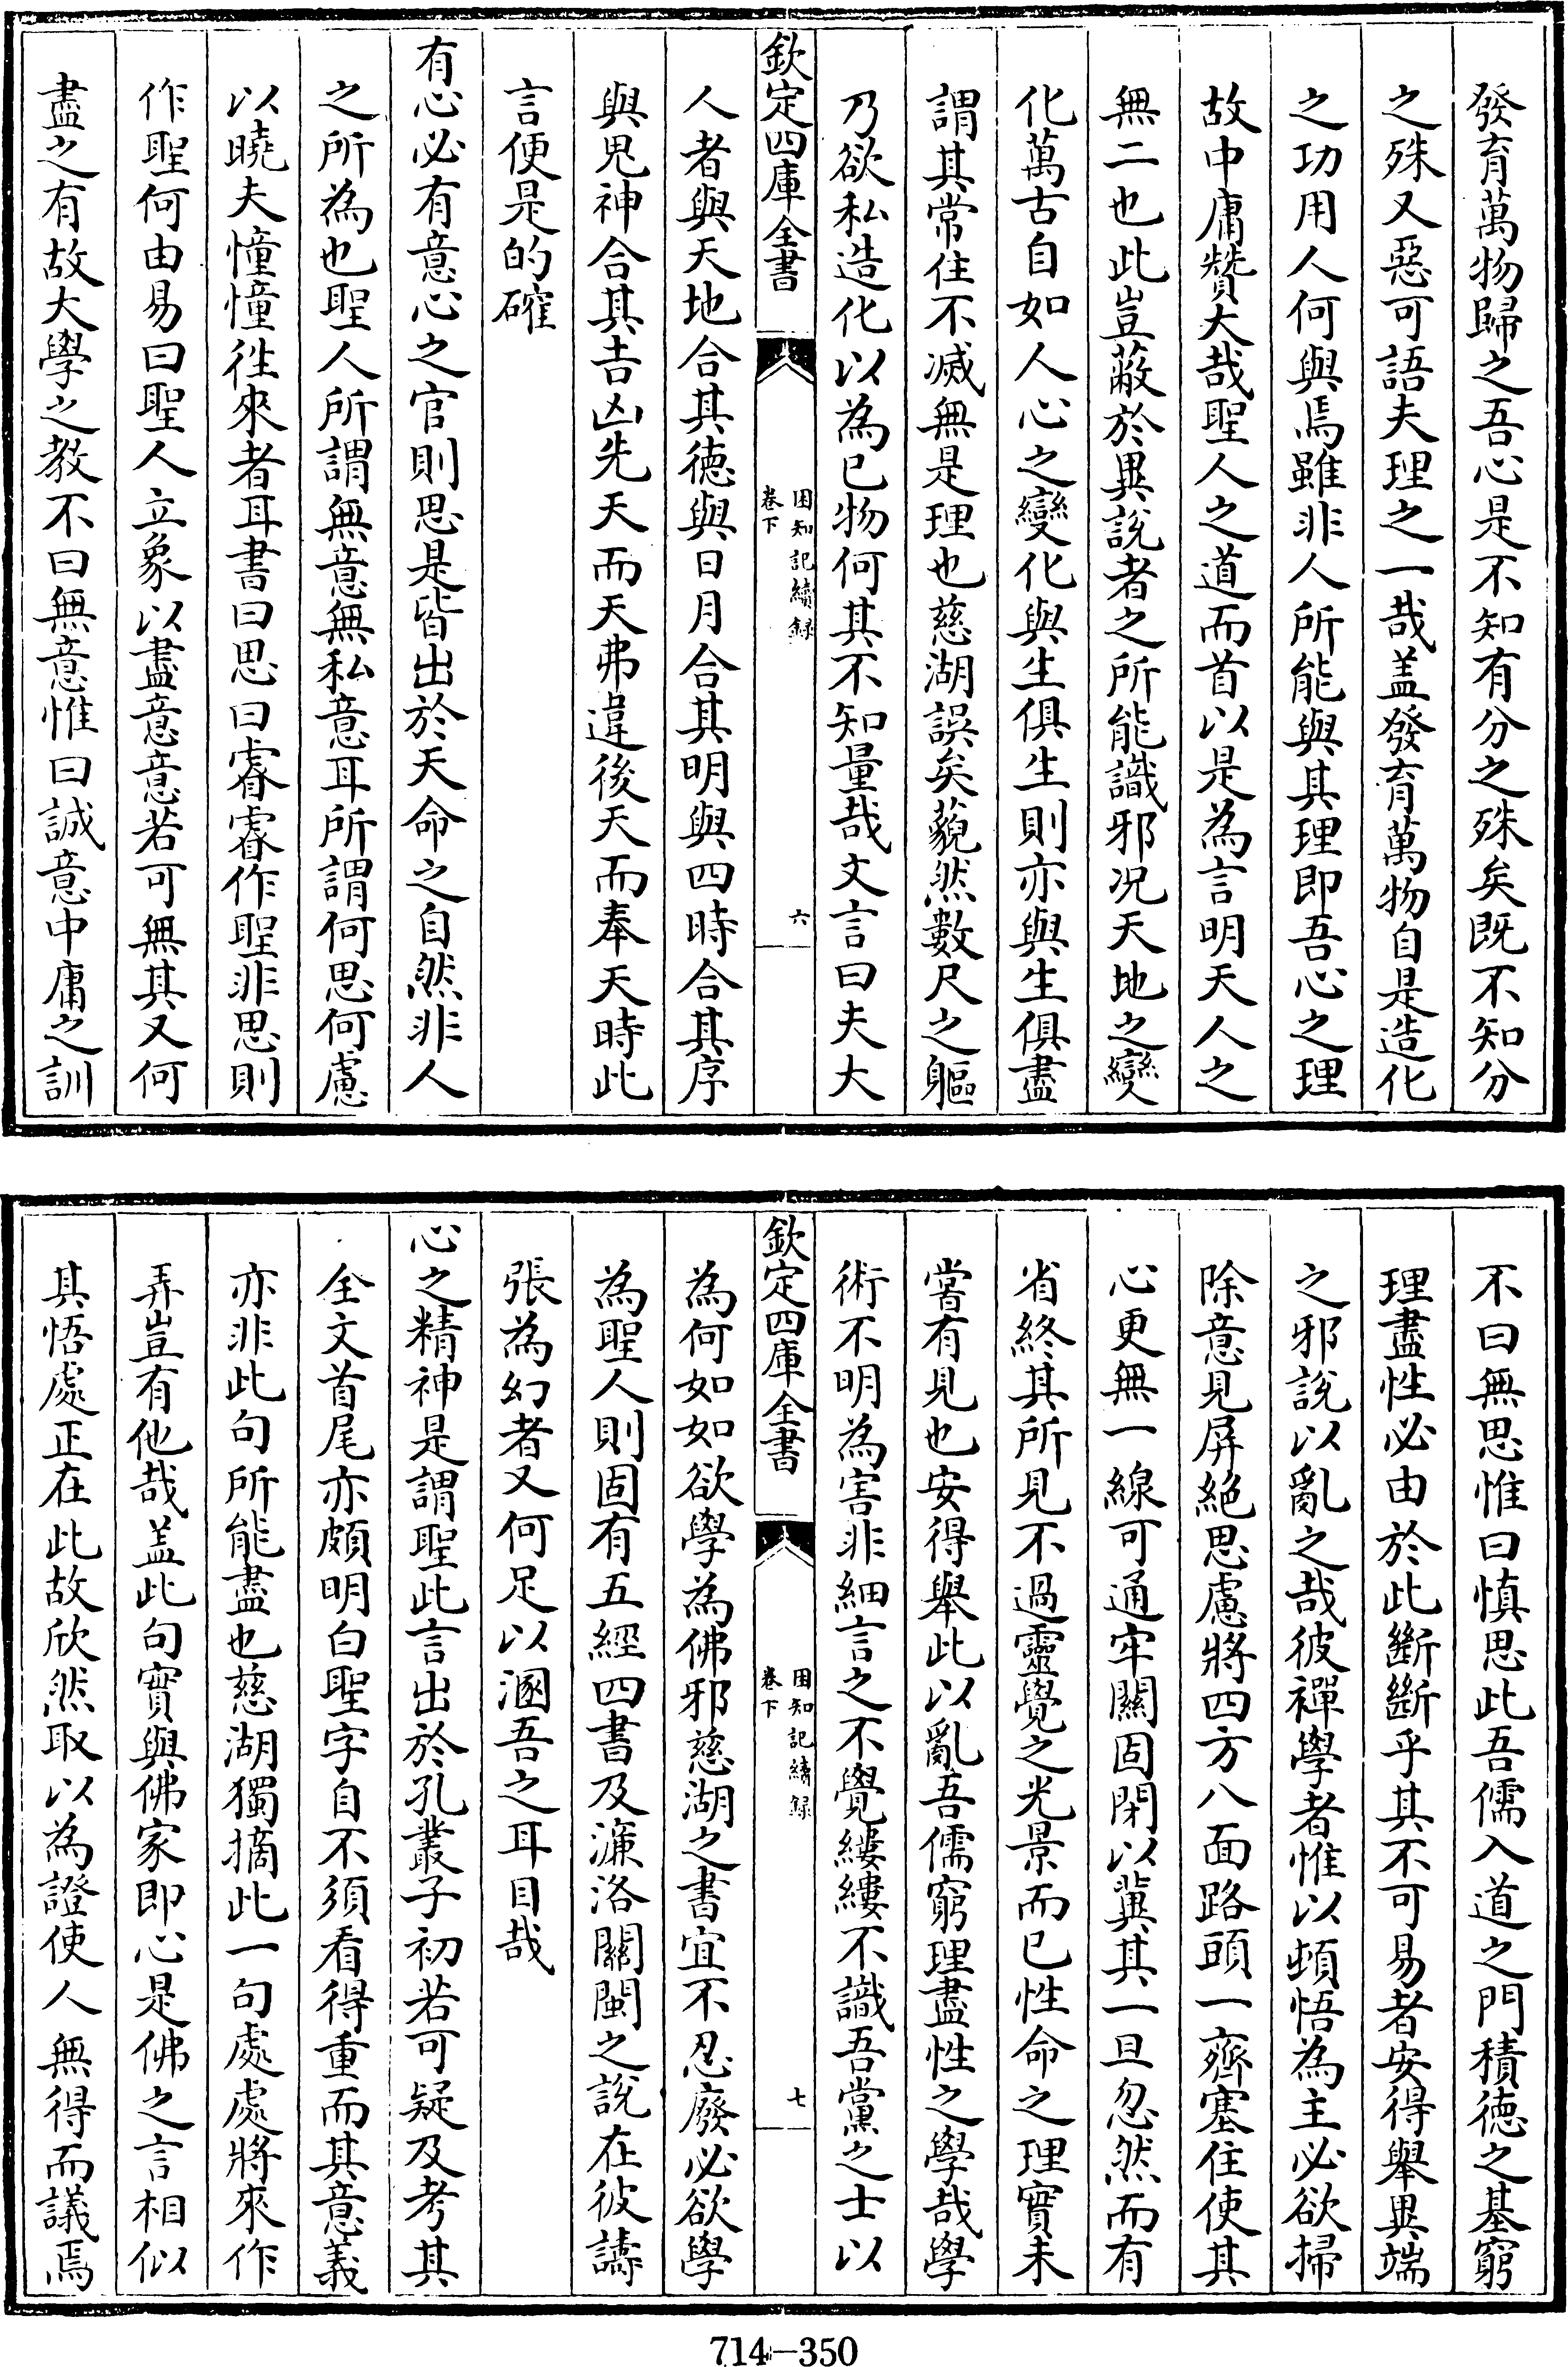 發育萬物歸之吾心是不知有分之殊矣既不知分
之殊又惡可語夫理之一哉盖發育萬物自是造化
之功用人何與焉雖非人所能與其理即吾心之理
故中庸贊大哉聖人之道而首以是為言明天人之
無二也此豈蔽於異說者之所能識邪况天地之變
化萬古自如人心之變化與生俱生則亦與生俱盡
謂其常住不滅無是理也慈湖誤矣藐然數尺之軀
乃欲私造化以為已物何其不知量哉文言曰夫大
欽定四庫全書
困知記續録
卷下
六
人者與天地合其徳與日月合其明與四時合其序
與鬼神合其吉凶先天而天弗違後天而奉天時此
言便是的確
有心必有意心之官則思是皆出於天命之自然非人
之所為也聖人所謂無意無私意耳所謂何思何慮
以曉夫憧憧徃來者耳書曰思曰睿睿作聖非思則
作聖何由易曰聖人立象以盡意意若可無其又何
盡之有故大學之教不曰無意惟曰誠意中庸之訓
不曰無思惟曰慎思此吾儒入道之門積徳之基窮
理盡性必由於此斷斷乎其不可易者安得舉異端
之邪說以亂之哉彼禪學者惟以頓悟為主必欲掃
除意見屏絶思慮將四方八面路頭一齊塞住使其
心更無一線可通牢關固閉以冀其一旦忽然而有
省終其所見不過靈覺之光景而已性命之理實未
嘗有見也安得舉此以亂吾儒窮理盡性之學哉學
術不明為害非細言之不覺縷縷不識吾黨之士以
欽定四庫全書
困知記續録
卷下
七
為何如如欲學為佛邪慈湖之書宜不忍廢必欲學
為聖人則固有五經四書及濂洛關閩之說在彼譸
張為幻者又何足以溷吾之耳目哉
心之精神是謂聖此言出於孔叢子初若可疑及考其
全文首尾亦頗明白聖字自不須看得重而其意義
亦非此句所能盡也慈湖獨摘此一句處處將來作
弄豈有他哉盖此句實與佛家即心是佛之言相似
其悟處正在此故欣然取以為證使人無得而議焉
714-350